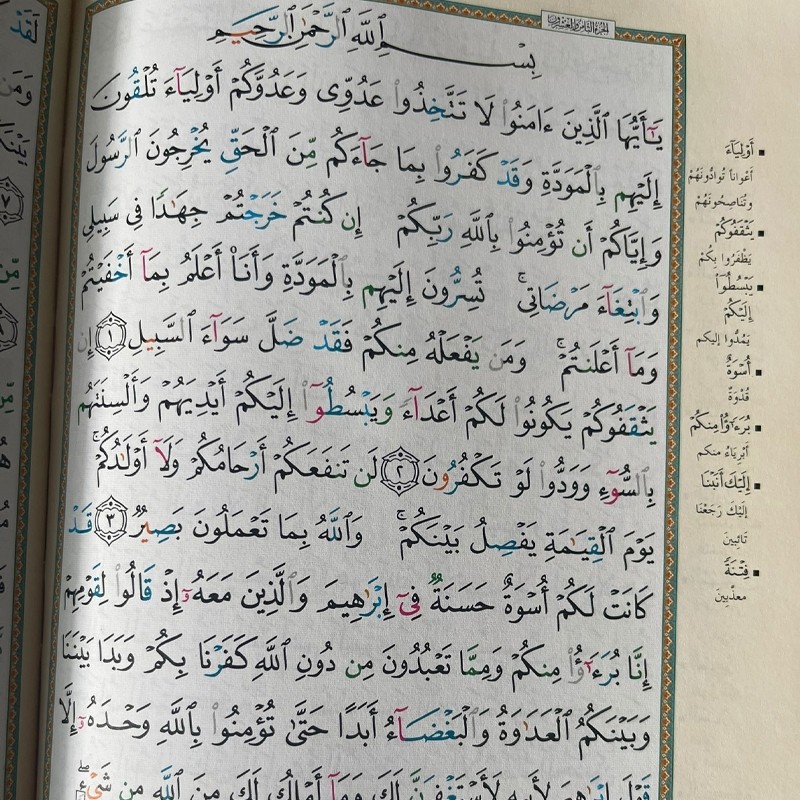 الجزء الثامن والعشرون
بِسْمِ ٱللَّهِ ٱلرَّحْمَٰنِ ٱلرَّحِيمِ
يَٰٓأَيُّهَا ٱلَّذِينَ ءَامَنُوا۟ لَا تَتَّخِذُوا۟ عَدُوِّى وَعَدُوَّكُمْ أَوْلِيَآءَ تُلْقُونَ
إِلَيْهِم بِٱلْمَوَدَّةِ وَقَدْ كَفَرُوا۟ بِمَا جَآءَكُم مِّنَ ٱلْحَقِّ يُخْرِجُونَ ٱلرَّسُولَ
وَإِيَّاكُمْ أَن تُؤْمِنُوا۟ بِٱللَّهِ رَبِّكُمْ إِن كُنتُمْ خَرَجْتُمْ جِهَٰدًا فِى سَبِيلِى
وَٱبْتِغَآءَ مَرْضَاتِى ۚ تُسِرُّونَ إِلَيْهِم بِٱلْمَوَدَّةِ وَأَنَا۠ أَعْلَمُ بِمَآ أَخْفَيْتُمْ
وَمَآ أَعْلَنتُمْ ۚ وَمَن يَفْعَلْهُ مِنكُمْ فَقَدْ ضَلَّ سَوَآءَ ٱلسَّبِيلِ ١ إِن
يَثْقَفُوكُمْ يَكُونُوا۟ لَكُمْ أَعْدَآءً وَيَبْسُطُوٓا۟ إِلَيْكُمْ أَيْدِيَهُمْ وَأَلْسِنَتَهُم
بِٱلسُّوٓءِ وَوَدُّوا۟ لَوْ تَكْفُرُونَ ٢ لَن تَنفَعَكُمْ أَرْحَامُكُمْ وَلَآ أَوْلَٰدُكُمْ ۚ
يَوْمَ ٱلْقِيَٰمَةِ يَفْصِلُ بَيْنَكُمْ ۚ وَٱللَّهُ بِمَا تَعْمَلُونَ بَصِيرٌ ٣ قَدْ
كَانَتْ لَكُمْ أُسْوَةٌ حَسَنَةٌ فِىٓ إِبْرَٰهِيمَ وَٱلَّذِينَ مَعَهُۥٓ إِذْ قَالُوا۟ لِقَوْمِهِمْ
إِنَّا بُرَءَٰٓؤُا۟ مِنكُمْ وَمِمَّا تَعْبُدُونَ مِن دُونِ ٱللَّهِ كَفَرْنَا بِكُمْ وَبَدَا بَيْنَنَا
وَبَيْنَكُمُ ٱلْعَدَٰوَةُ وَٱلْبَغْضَآءُ أَبَدًا حَتَّىٰ تُؤْمِنُوا۟ بِٱللَّهِ وَحْدَهُۥٓ إِلَّا
قَوْلَ إِبْرَٰهِيمَ لِأَبِيهِ لَأَسْتَغْفِرَنَّ لَكَ وَمَآ أَمْلِكُ لَكَ مِنَ ٱللَّهِ مِن شَىْءٍ ۖ
أَوْلِيَآءَ
أَعْوَاناً تُوَادُّونَهُمْ
وتُنَاصِحُونَهُمْ
يَثْقَفُوكُمْ
يَظْفَرُوا بِكُمْ
يَبْسُطُوٓا۟
إِلَيْكُمْ
يَمُدُّوا إليكم
أُسْوَةٌ
قُدْوَةٌ
بُرَءَٰٓؤُا۟ مِنكُمْ
أَبْرِيَاءُ منكم
إِلَيْكَ أَنَبْنَا
إلَيْكَ رَجَعْنَا
تَائِبينَ
فِتْنَةً
معذَّبين